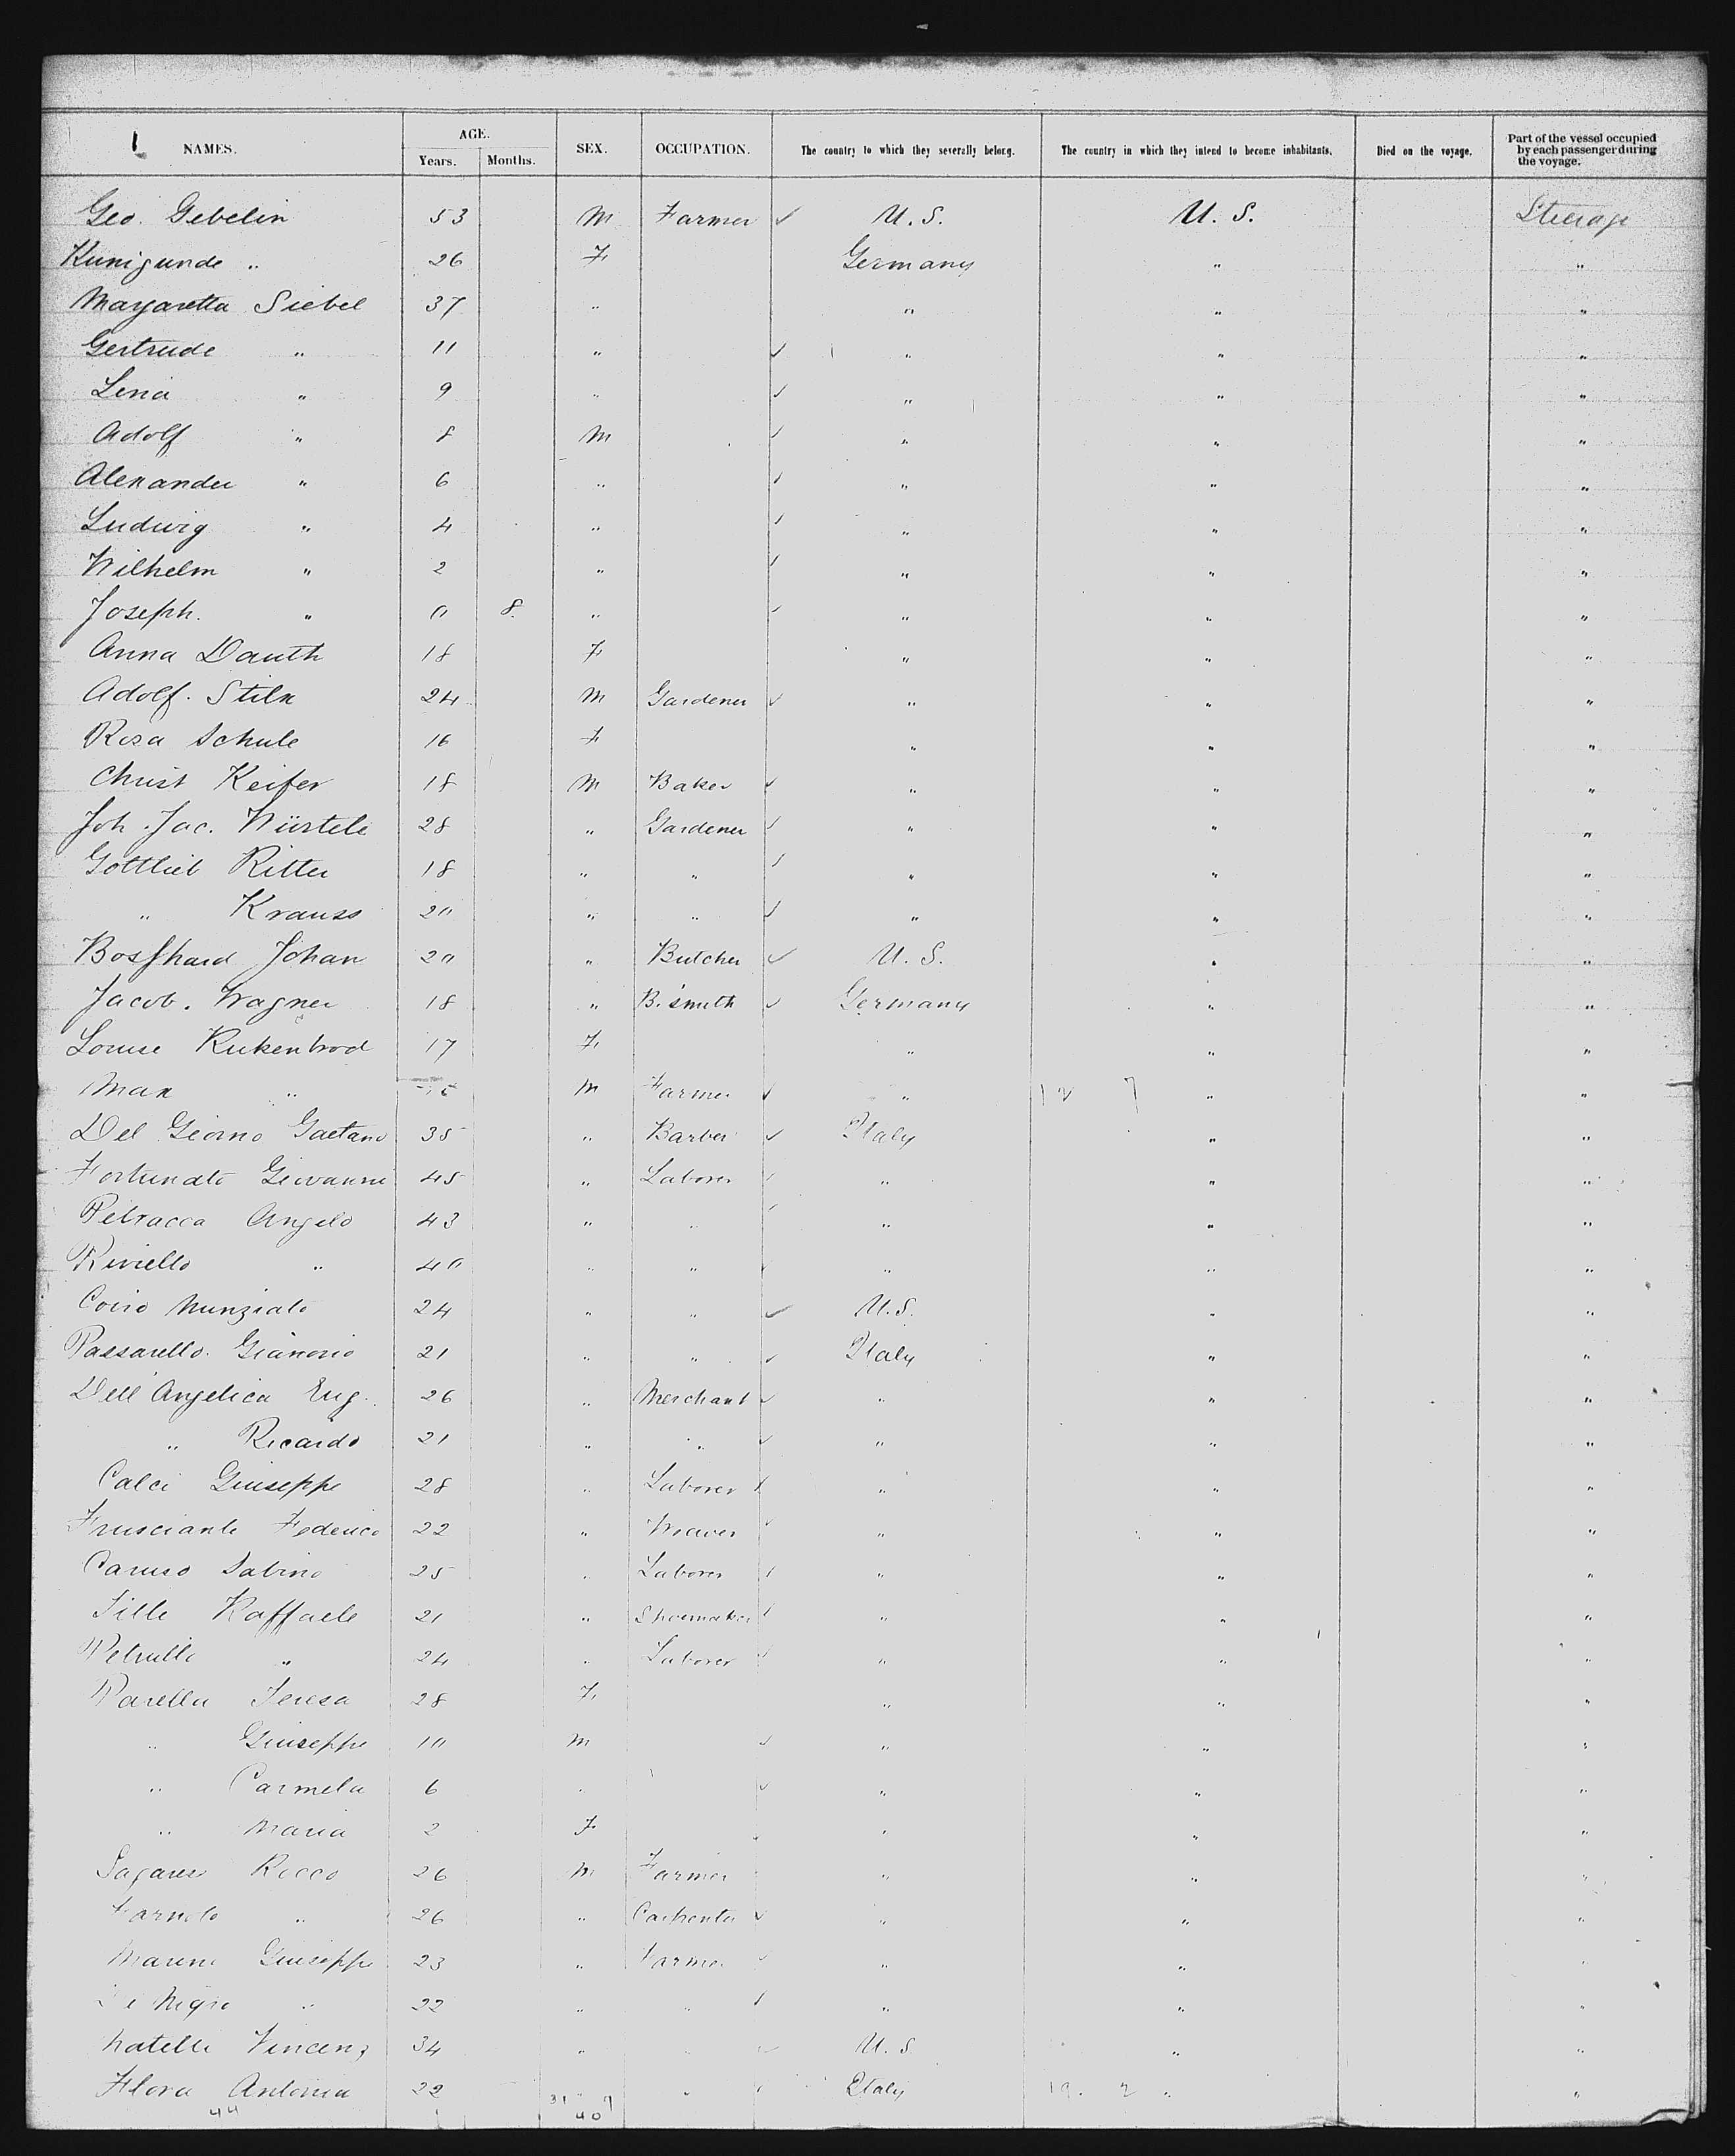 1 NAMES. AGE. Years. Months. SEX. OCCUPATION. The country to which they severally belong. The country in which they intend to become inhabitants. Died on the voyage. Part of the vessel occupied by each passenger during the voyage.
Geo. Gebelin 53 M Farmer ✓ U.S. U.S. Steerage
Kunigunde " 26 F Germany " "
Margaretta Siebel 37 " " " "
Gertrude " 11 " ✓ " " "
Lena " 9 " ✓ " " "
Adolf " 8 M ✓ " " "
Alexander " 6 " ✓ " " "
Ludwig " 4 " ✓ " " "
Wilhelm " 2 " ✓ " " "
Joseph. " 0 8. " ✓ " " "
Anna Dauth 18 F " " "
Adolf. Stilx 24 M Gardener ✓ " " "
Rosa Schule 16 F " " "
Christ Keifer 18 M Baker ✓ " " "
Joh. Jac. Würtele 28 " Gardener ✓ " " "
Gottlieb Ritter 18 " " ✓ " " "
" Krauss 20 " " ✓ " " "
Bosshard Johan 20 " Butcher ✓ U.S. " "
Jacob. Wagner 18 " B. smith ✓ Germany " "
Louise Kukenbrod 17 F " " "
Max " M Farmer ✓ " " "
Del Giorno Gaetano 35 " Barber ✓ Italy " "
Fortunato Giovanni 45 " Laborer ✓ " " "
Petracca Angelo 43 " " ✓ " " "
Riviello " 40 " " ✓ " " "
Coiro Nunziato 24 " " ✓ U.S. " "
Passarello. 21 " " ✓ Italy " "
Dell'Angelica Eug. 26 " Merchant ✓ " " "
" Ricardo 21 " " ✓ " " "
Calci Giuseppe 28 " Laborer ✓ " " "
Frusciante Federico 22 " Weaver ✓ " " "
Caruso Sabino 25 " Laborer ✓ " " "
Raffaele 21 " Shoemaker ✓ " " "
Petrullo " 24 " Laborer ✓ " " "
Parella Teresa 28 F " " "
" Giuseppe 10 M ✓ " " "
" Carmela 6 " ✓ " " "
" Maria 2 F " " "
Rocco 26 M Farmer " " "
" 26 " Carpenter ✓ " " "
Giuseppe 23 " Farmer ✓ " " "
Di Nigro " 22 " " ✓ " " "
Natelli Vincenz 34 " " ✓ U.S. " "
Flora Antonia 22 " ✓ Italy " "
44 40